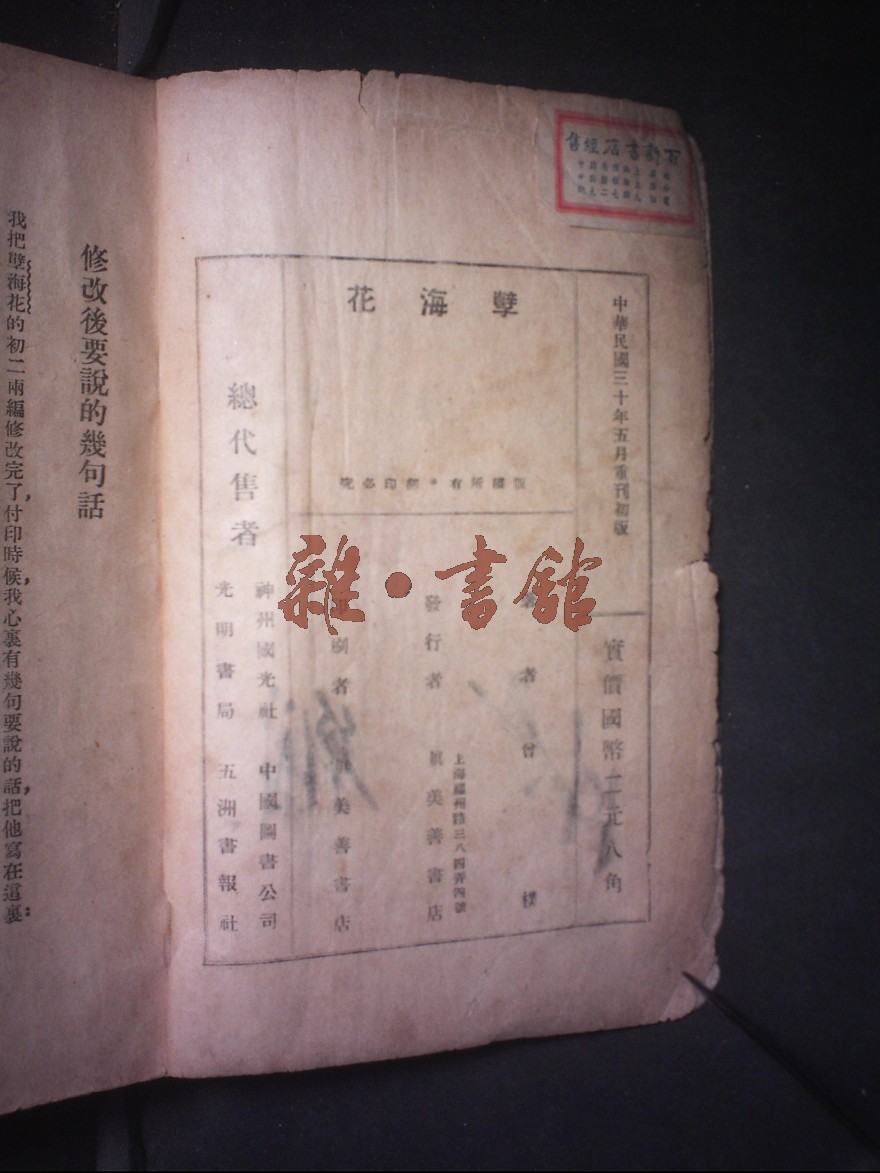 百新書店經售
中華民國三十年五月重刊初版
實價國幣二元八角
孽海花
版權所有·翻印必究
著者 曾樸
發行者 眞美善書店
上海福州路三八四弄四號
印刷者 眞美善書店
總代售者
神州國光社 中國圖書公司
光明書局 五洲書報社
雜·書館
修改後要說的幾句話
我把孽海花的初二兩編修改完了，付印時候，我心裏有幾句要說的話，把他寫在這裏：